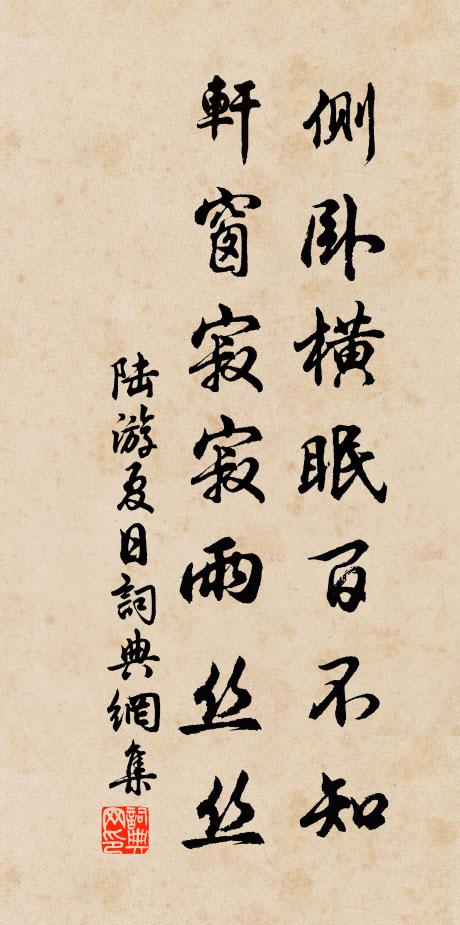 側卧橫眠百不知
軒窗寂寂雨丝丝
陆游夏日詞典網集
詞典
网印